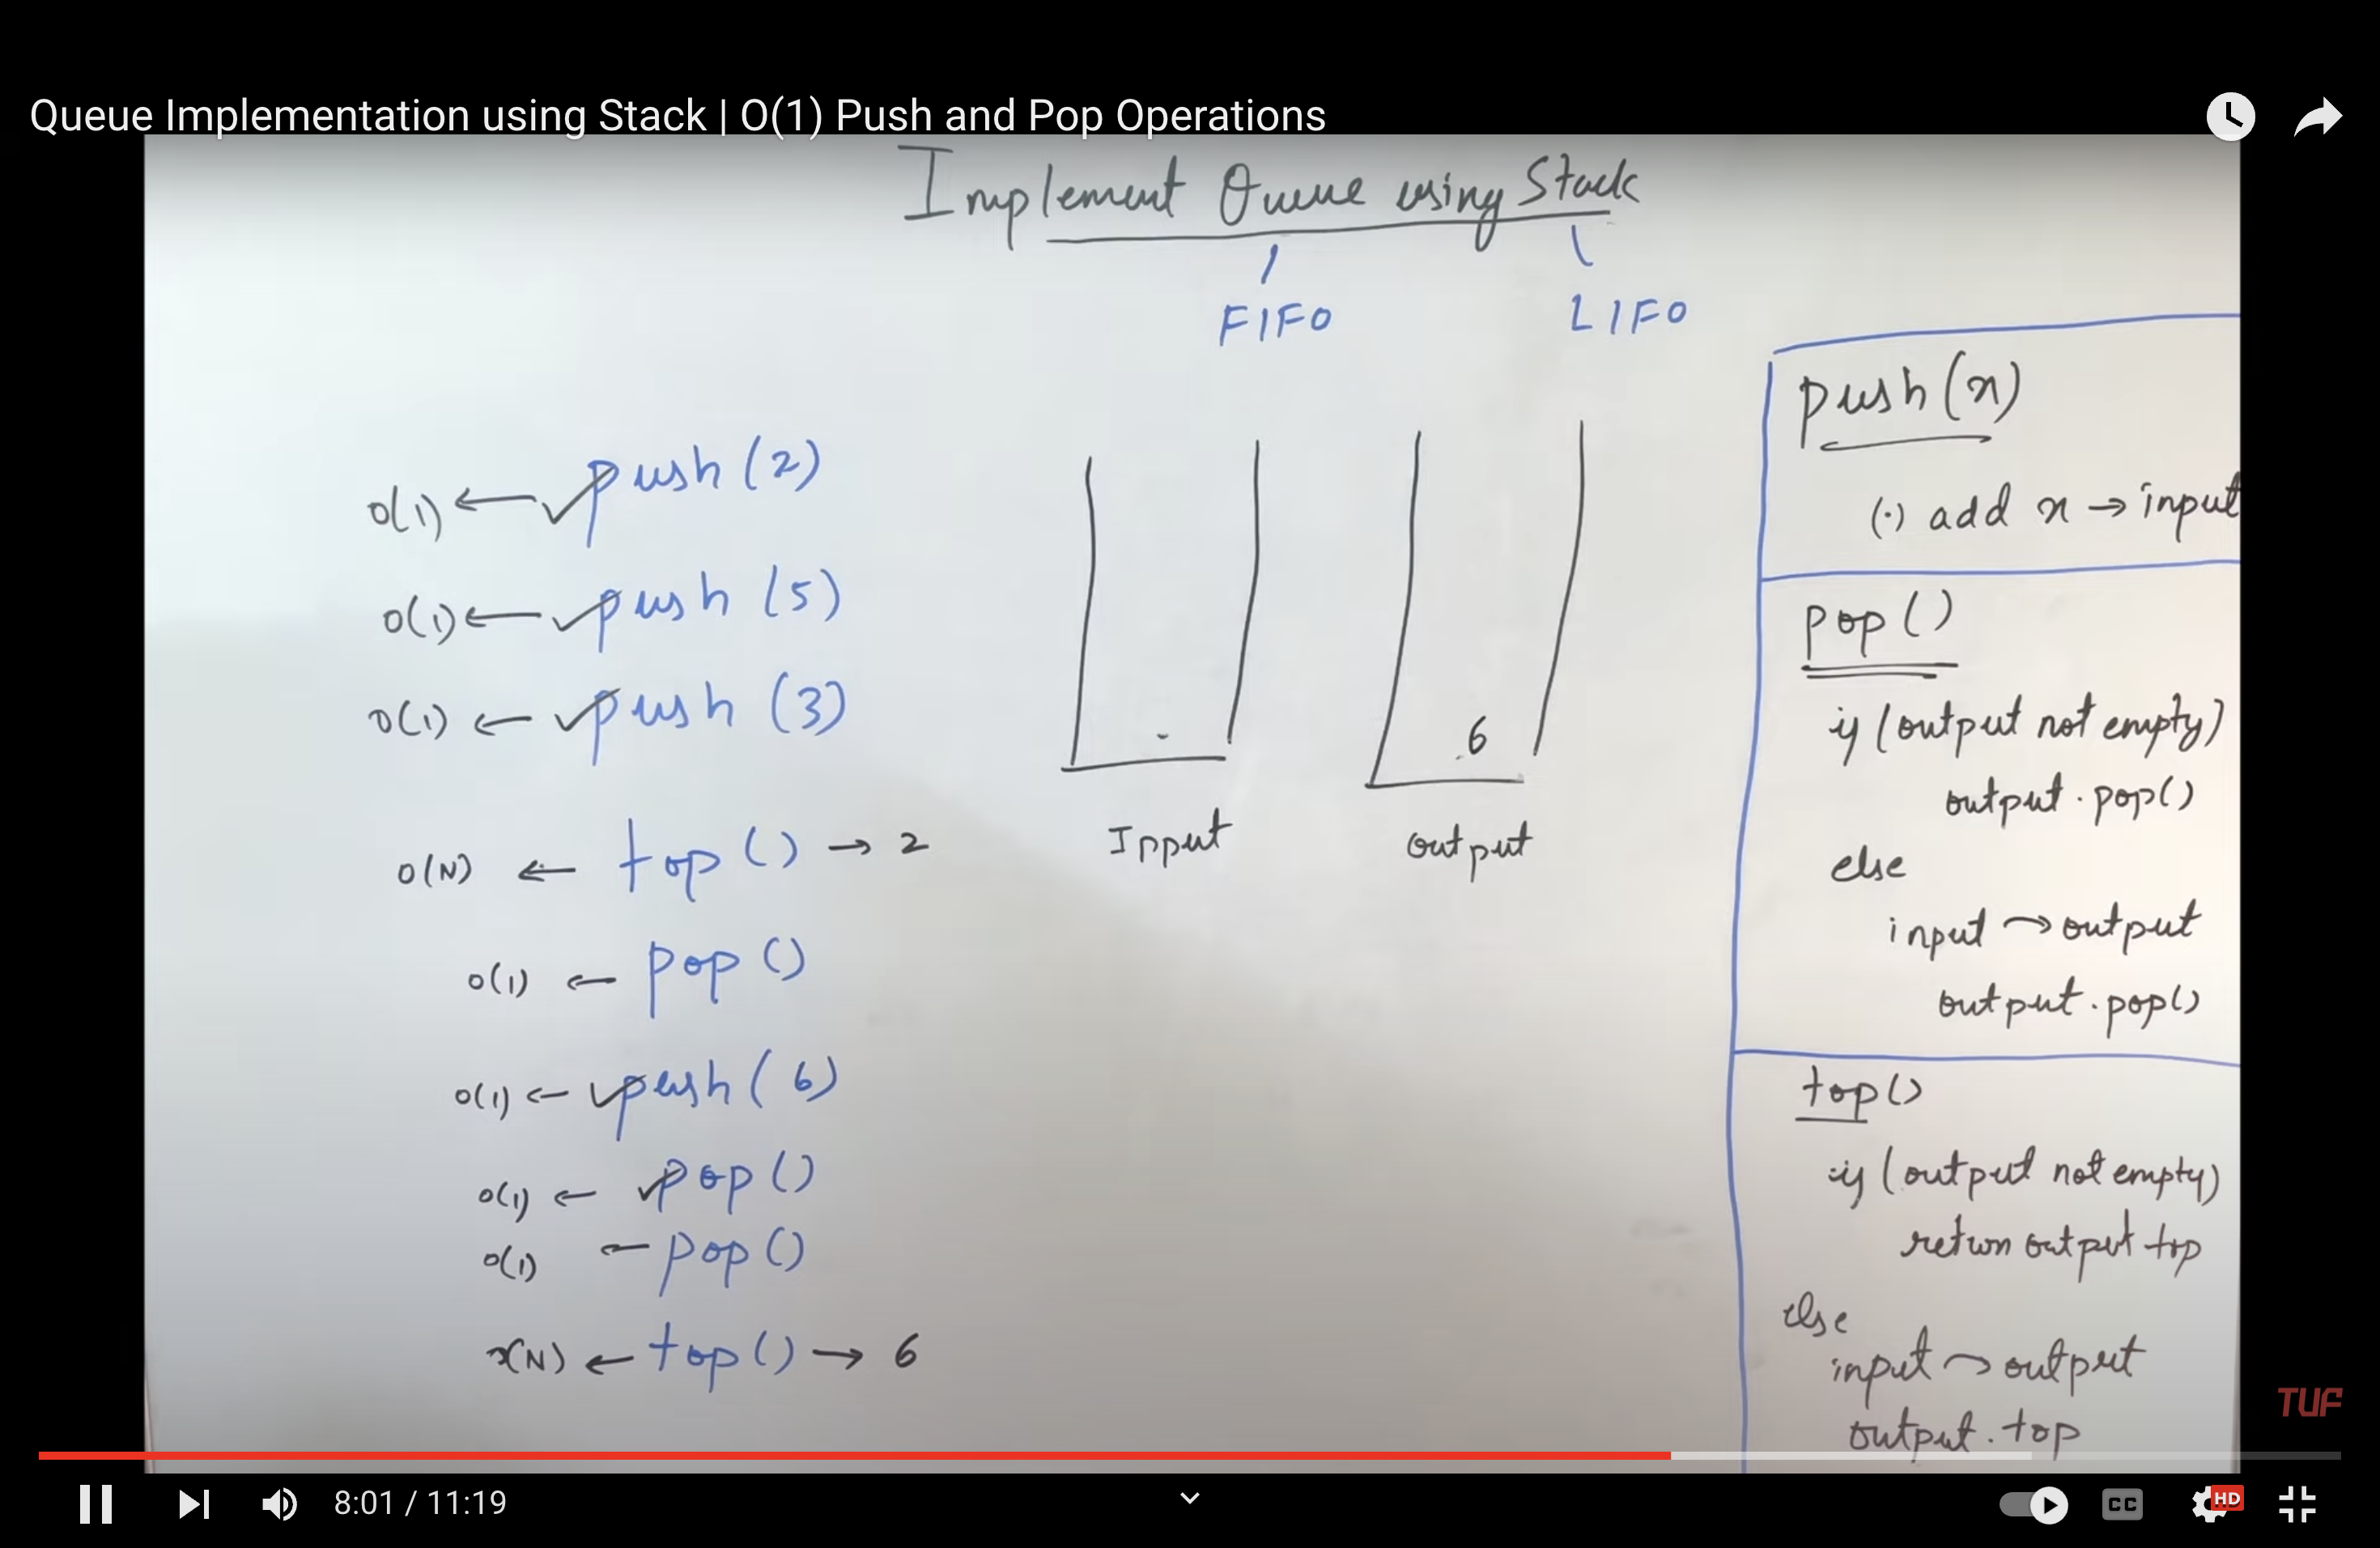 Queue Implementation using Stack | O(1) Push and Pop Operations
Implement Queue using Stack
FIFO
LIFO
O(1) ← ✓push(2)
O(1) ← ✓push(5)
O(1) ← ✓push(3)
O(N) ← top() → 2
O(1) ← pop()
O(1) ← ✓push(6)
O(1) ← ✓pop()
O(1) ← pop()
O(N) ← top() → 6
6
Input
output
push(x)
(·) add x → input
pop()
if (output not empty)
output.pop()
else
input → output
output.pop()
top()
if (output not empty)
return output top
else
input → output
output.top
TUF
8:01 / 11:19
CC
HD